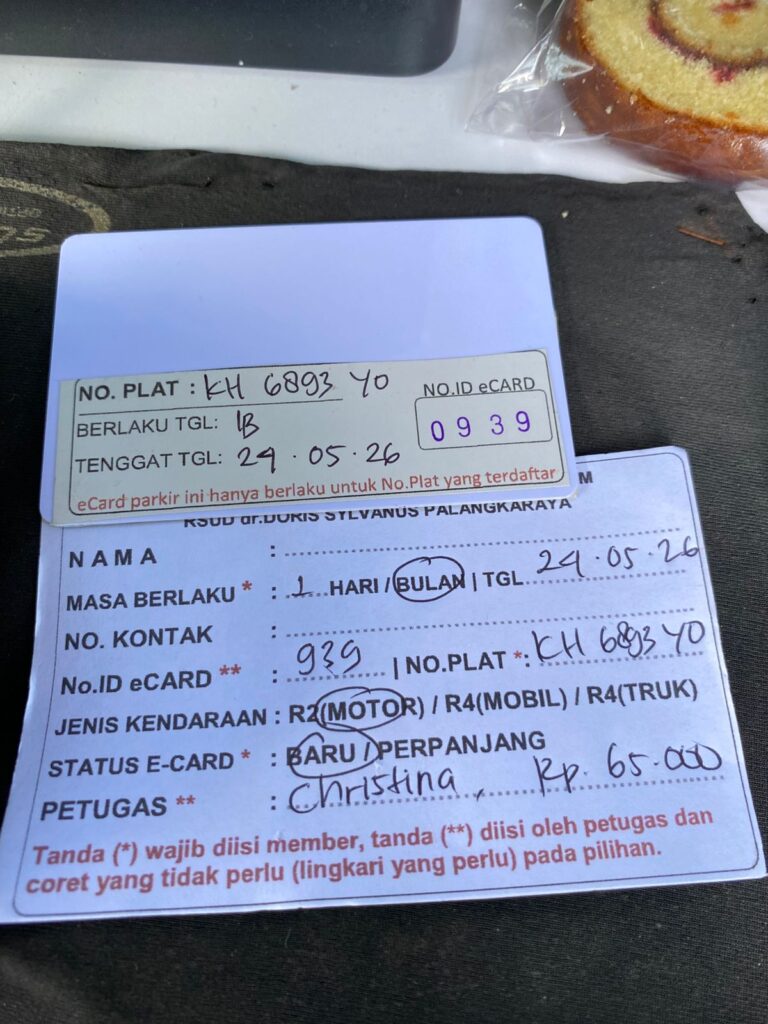 NO. PLAT : KH 6893 YO
NO.ID eCARD
BERLAKU TGL: 1B
0939
TENGGAT TGL: 24.05.26
eCard parkir ini hanya berlaku untuk No.Plat yang terdaftar
M
RSUD dr.DORIS SYLVANUS PALANGKARAYA
NAMA :
MASA BERLAKU * : 1 HARI / BULAN | TGL 24.05.26
NO. KONTAK :
No.ID eCARD ** : 939 | NO.PLAT *: KH 6893 YO
JENIS KENDARAAN : R2(MOTOR) / R4(MOBIL) / R4(TRUK)
STATUS E-CARD * : BARU / PERPANJANG
PETUGAS ** : Christina, Rp. 65.000
Tanda (*) wajib diisi member, tanda (**) diisi oleh petugas dan
coret yang tidak perlu (lingkari yang perlu) pada pilihan.